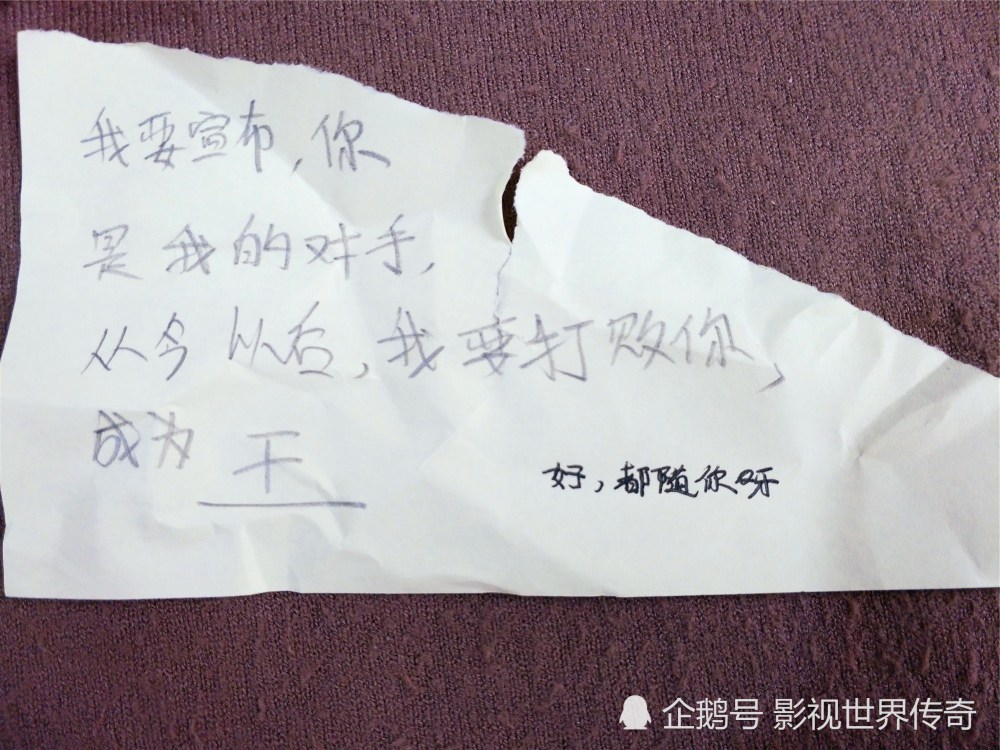 我要宣布,你
是我的对手,
从今以后,我要打败你,
成为 干
好,都随你呀
企鹅号 影视世界传奇